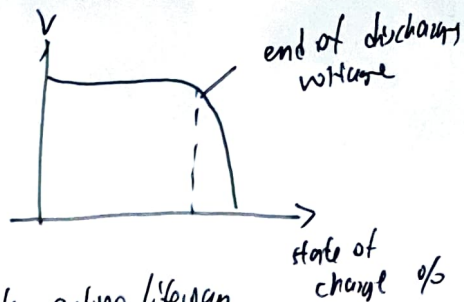 V
end of discharge
voltage
state of
charge %
lifespan